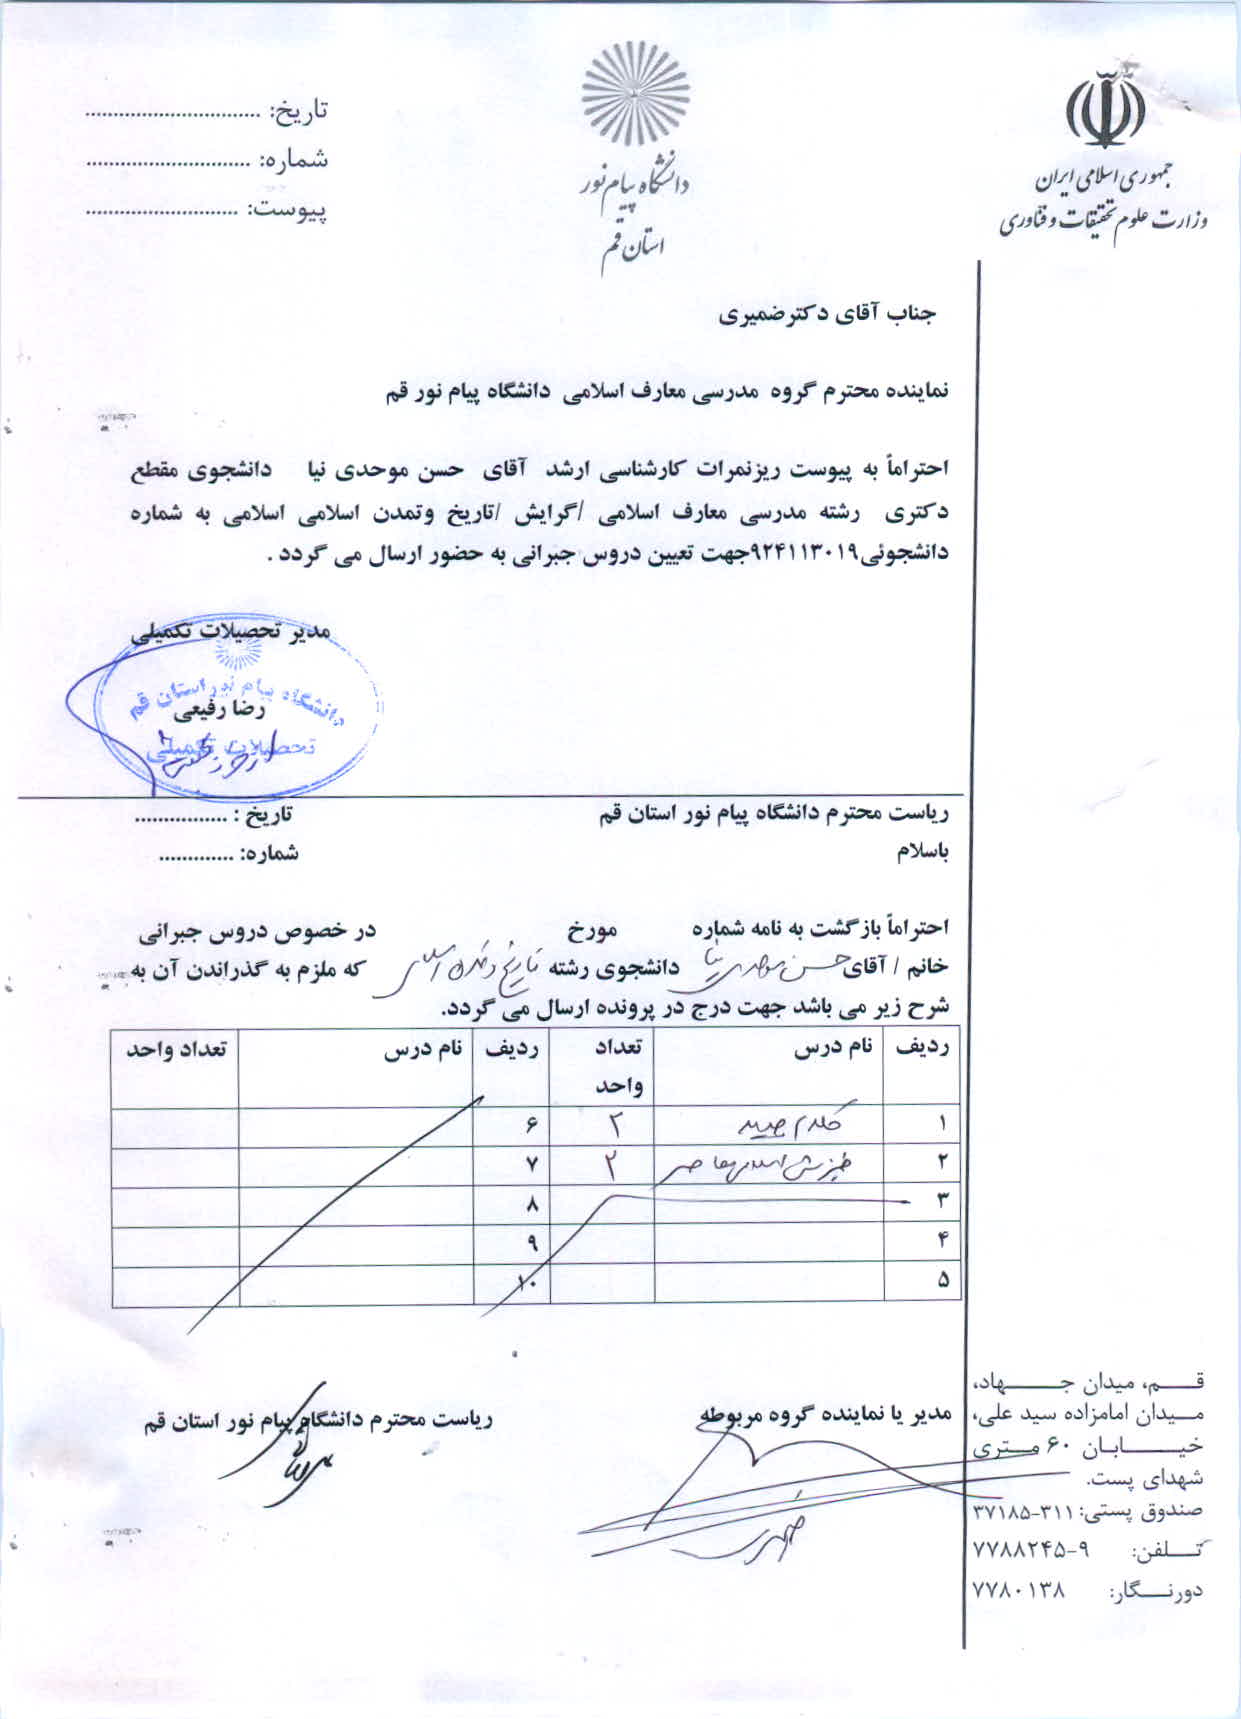 جمهوری اسلامی ایران
وزارت علوم تحقیقات و فناوری
دانشگاه پیام نور
استان قم
تاریخ: ................................
شماره: ..............................
پیوست: ............................
جناب آقای دکترضمیری
نماینده محترم گروه مدرسی معارف اسلامی دانشگاه پیام نور قم
احتراماً به پیوست ریزنمرات کارشناسی ارشد آقای حسن موحدی نیا دانشجوی مقطع
دکتری رشته مدرسی معارف اسلامی /گرایش /تاریخ وتمدن اسلامی اسلامی به شماره
دانشجوئی۹۲۴۱۱۳۰۱۹جهت تعیین دروس جبرانی به حضور ارسال می گردد .
مدیر تحصیلات تکمیلی
دانشگاه پیام نور استان قم
رضا رفیعی
تحصیلات تکمیلی
ریاست محترم دانشگاه پیام نور استان قم
تاریخ : ................
باسلام
شماره: .............
احتراماً بازگشت به نامه شماره مورخ در خصوص دروس جبرانی
خانم / آقای حسن موحدی نیا دانشجوی رشته تاریخ و تمدن اسلامی که ملزم به گذراندن آن به
شرح زیر می باشد جهت درج در پرونده ارسال می گردد.
ردیف نام درس تعداد واحد ردیف نام درس تعداد واحد
۱ کلام جدید ۲ ۶
۲ اسلامی معاصر ۲ ۷
۳ ۸
۴ ۹
۵ ۱۰
مدیر یا نماینده گروه مربوطه
ریاست محترم دانشگاه پیام نور استان قم
ضمیری
قـــم، میدان جـــــهاد،
میـدان امامزاده سید علی،
خیـــابـان ۶۰ متـری
شهدای پست.
صندوق پستی: ۳۱۱-۳۷۱۸۵
تـــلفن: ۹-۷۷۸۸۲۴۵
دورنــگار: ۷۷۸۰۱۳۸